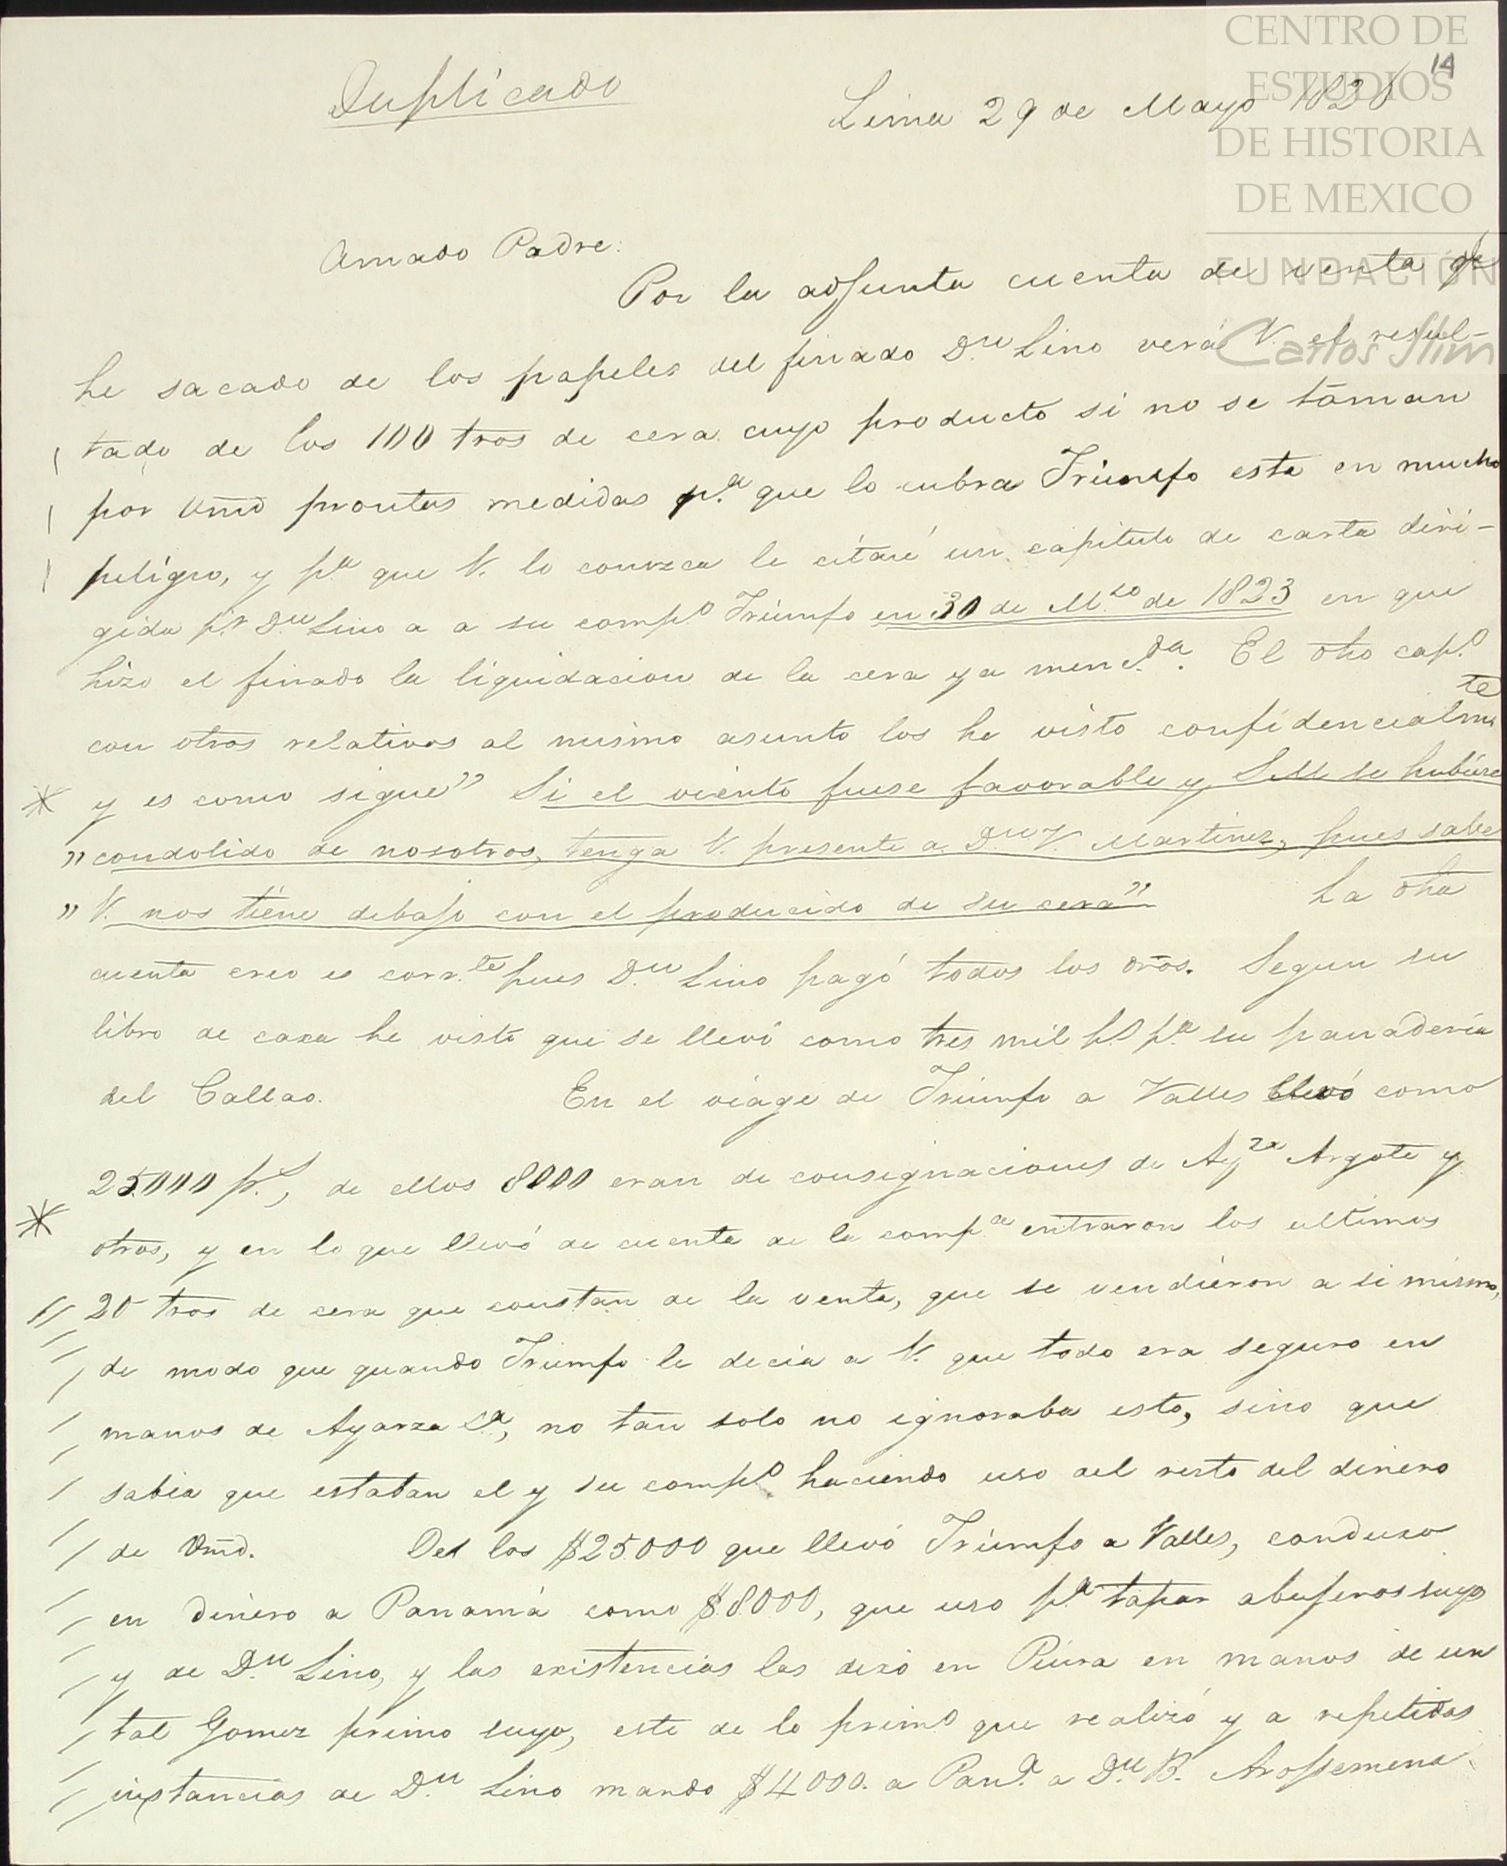 CENTRO DE
ESTUDIOS
DE HISTORIA
DE MEXICO
FUNDACIÓN
Carlos Slim
14
Duplicado
Lima 29 de Mayo 182
Amado Padre:
Por la adjunta cuenta de venta qe
he sacado de los papeles del finado Dn Lino verá V. el resul-
tado de los 100 tros de cera cuyo producto si no se tóman
por Vmd prontas medidas pa que lo cubra Triúmfo esta en mucho
peligro, y pa que V. lo conozca le citaré un capitulo de carta diri-
gida pr Dn Lino a a su compo Triúmfo en 30 de Mzo de 1823 en que
hizo el finado la liquidacion de la cera ya mencda. El dho capo
con otros relativos al mismo asunto los he visto confidencialmte
y es como sigue" Si el viento fuese favorable y se hubiese
" condolido de nosotros, tenga V. presente a Dn V. Martinez, pues sabe
" V. nos tiene debajo con el producido de su cera" La dha
cuenta creo es corrte pues Dn Lino pagó todos los dros. Segun su
libro de caxa he visto que se llevó como tres mil ps pa su panaderia
del Callao. En el viage de Triúmfo a Valles llevó como
25.000 ps, de ellos 8000 eran de consignaciones de Ayza Argote y
otros, y en lo que llevó de cuenta de la compa entraron los ultimos
20 tros de cera que constan de la venta, que se vendieron a si mismo,
de modo que quando Triúmfo le decia a V. que todo era seguro en
manos de Ayarza Ca, no tan solo no ignoraba esto, sino que
sabia que estaban el y su compo haciendo uso del resto del dinero
de Vmd. De los $25.000 que llevó Triúmfo a Valles, conduxo
en dinero a Panamá como $8.000, que uso pa tapar abujeros suyos
y de Dn Lino, y las existencias las dexó en Piúra en manos de un
tal Gomez primo suyo, este de lo primo que realizó y a repetidas
instancias de Dn Lino mando $4000. a Pana a Dn B. Arossemena